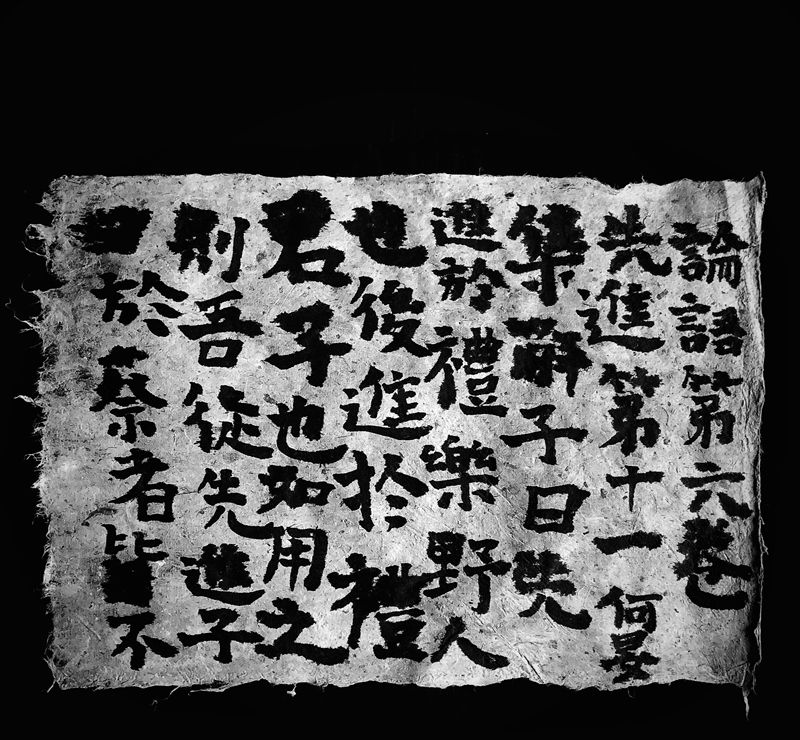 論語第六卷
先進第十一 何晏
集解子曰先
進於禮樂野人
也後進於禮
君子也如用之
則吾從先進子
曰於蔡者皆不